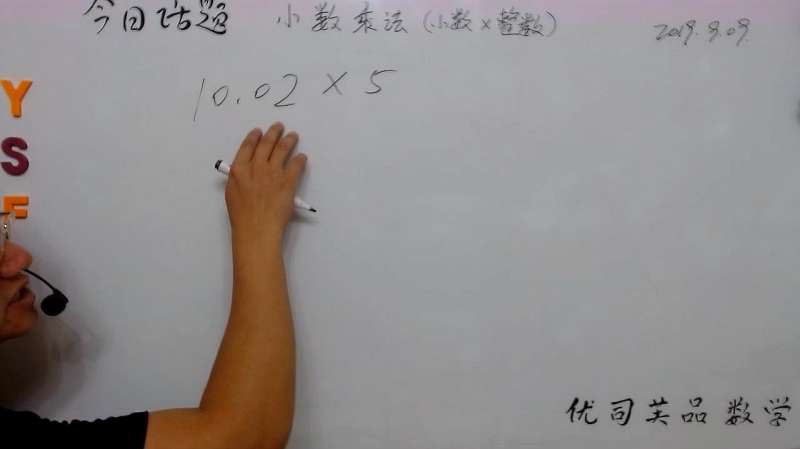 今日话题 小数乘法(小数×整数) 2019.9.09.
10.02×5
Y
S
优司芙品数学